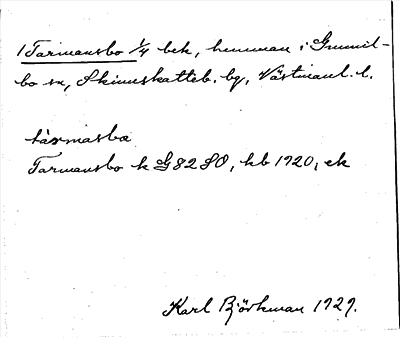 1 Tarmansbo 1/4 bek, hemman i Gunnil-
bo sn, Skinnskatteb. bg, Västmanl. l.
tàrmasba
Tarmansbo k G 82 SO, kb 1920, ek
Karl Björkman 1929.